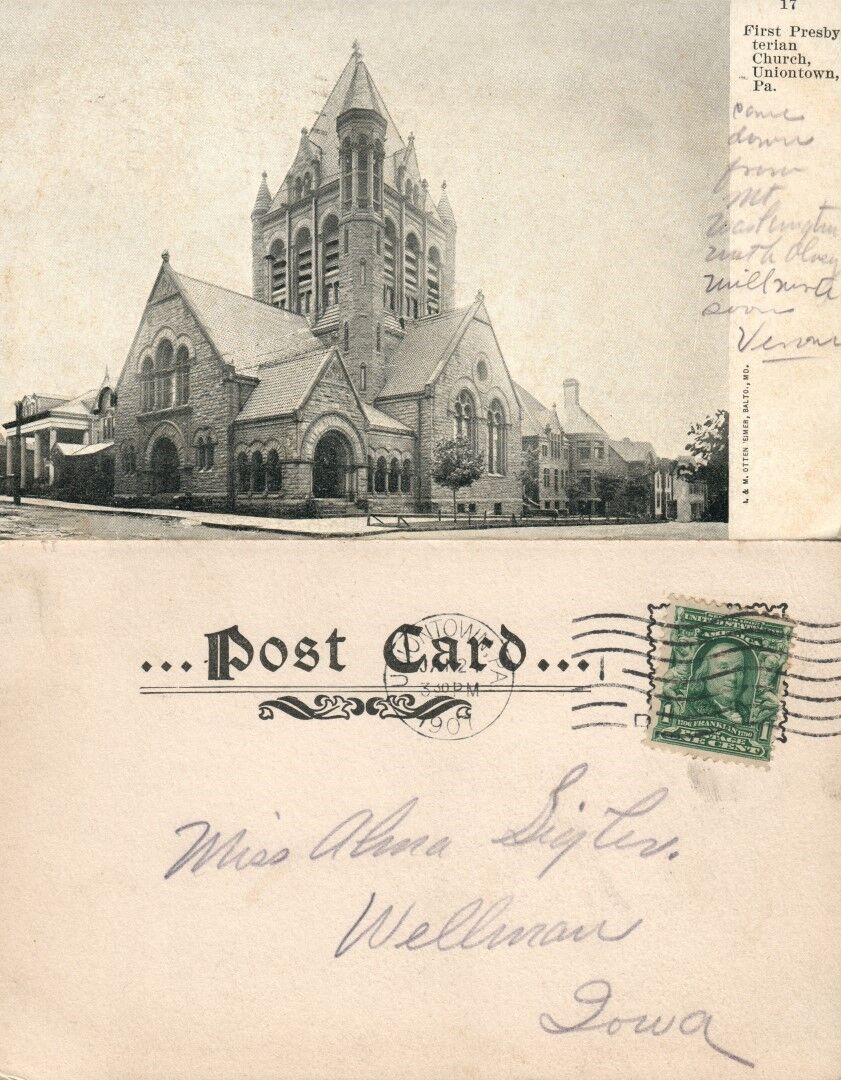 17
First Presby
terian
Church,
Uniontown,
Pa.
Came
down
from
Mt
Washington
with
will write
soon
L. & M. OTTENHEIMER, BALTO., MD.
...Post Card...
UNIONTOWN, PA
3 30 PM
1907
UNITED STATES
1706 FRANKLIN 1790
POSTAGE
1 1
ONE CENT
Miss Alma
Wellman
Iowa